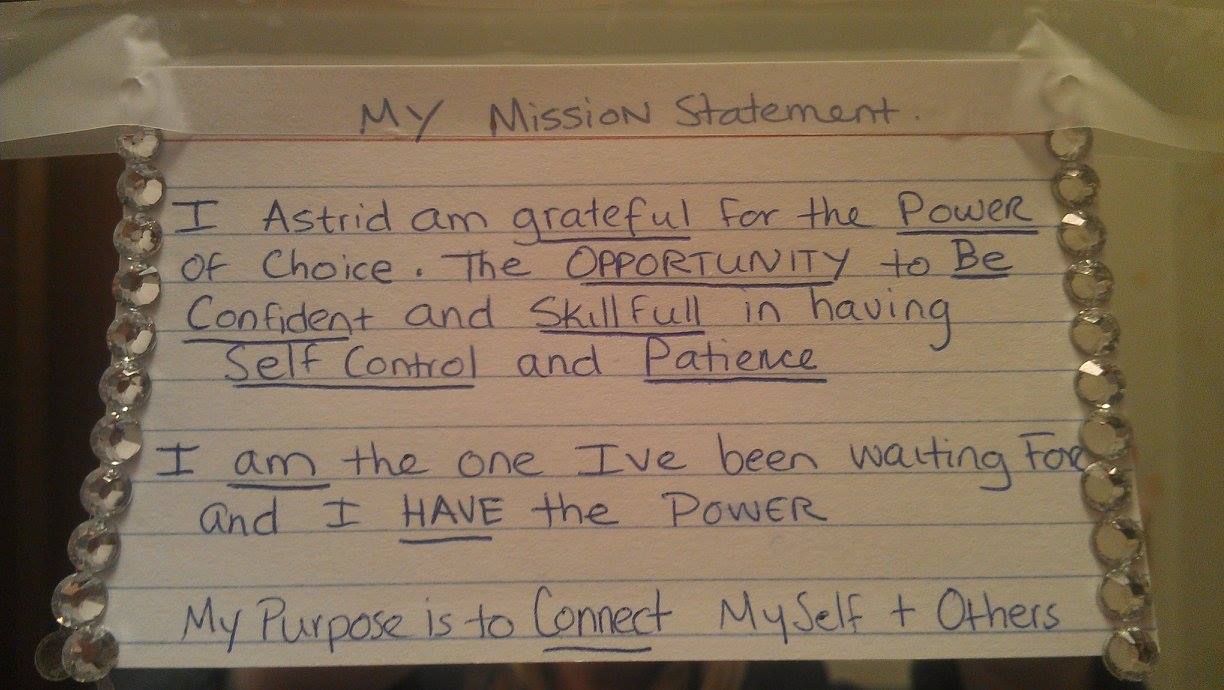 My Mission Statement.
I Astrid am grateful for the Power
of Choice. The OPPORTUNITY to Be
Confident and Skillfull in having
Self Control and Patience
I am the one Ive been waiting For
and I HAVE the POWER
My Purpose is to Connect MySelf + Others